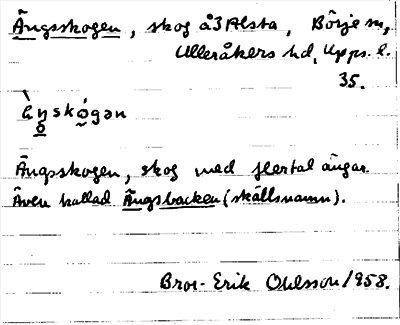 Ängsskogen, skog å 3 Alsta, Börje sn,
Ulleråkers hd, Upps. l.
35.
Ängsskogen, skog med flertal ängar.
Även kallad Ängsbacken (skällsnamn).
Bror-Erik Ohlsson 1958.